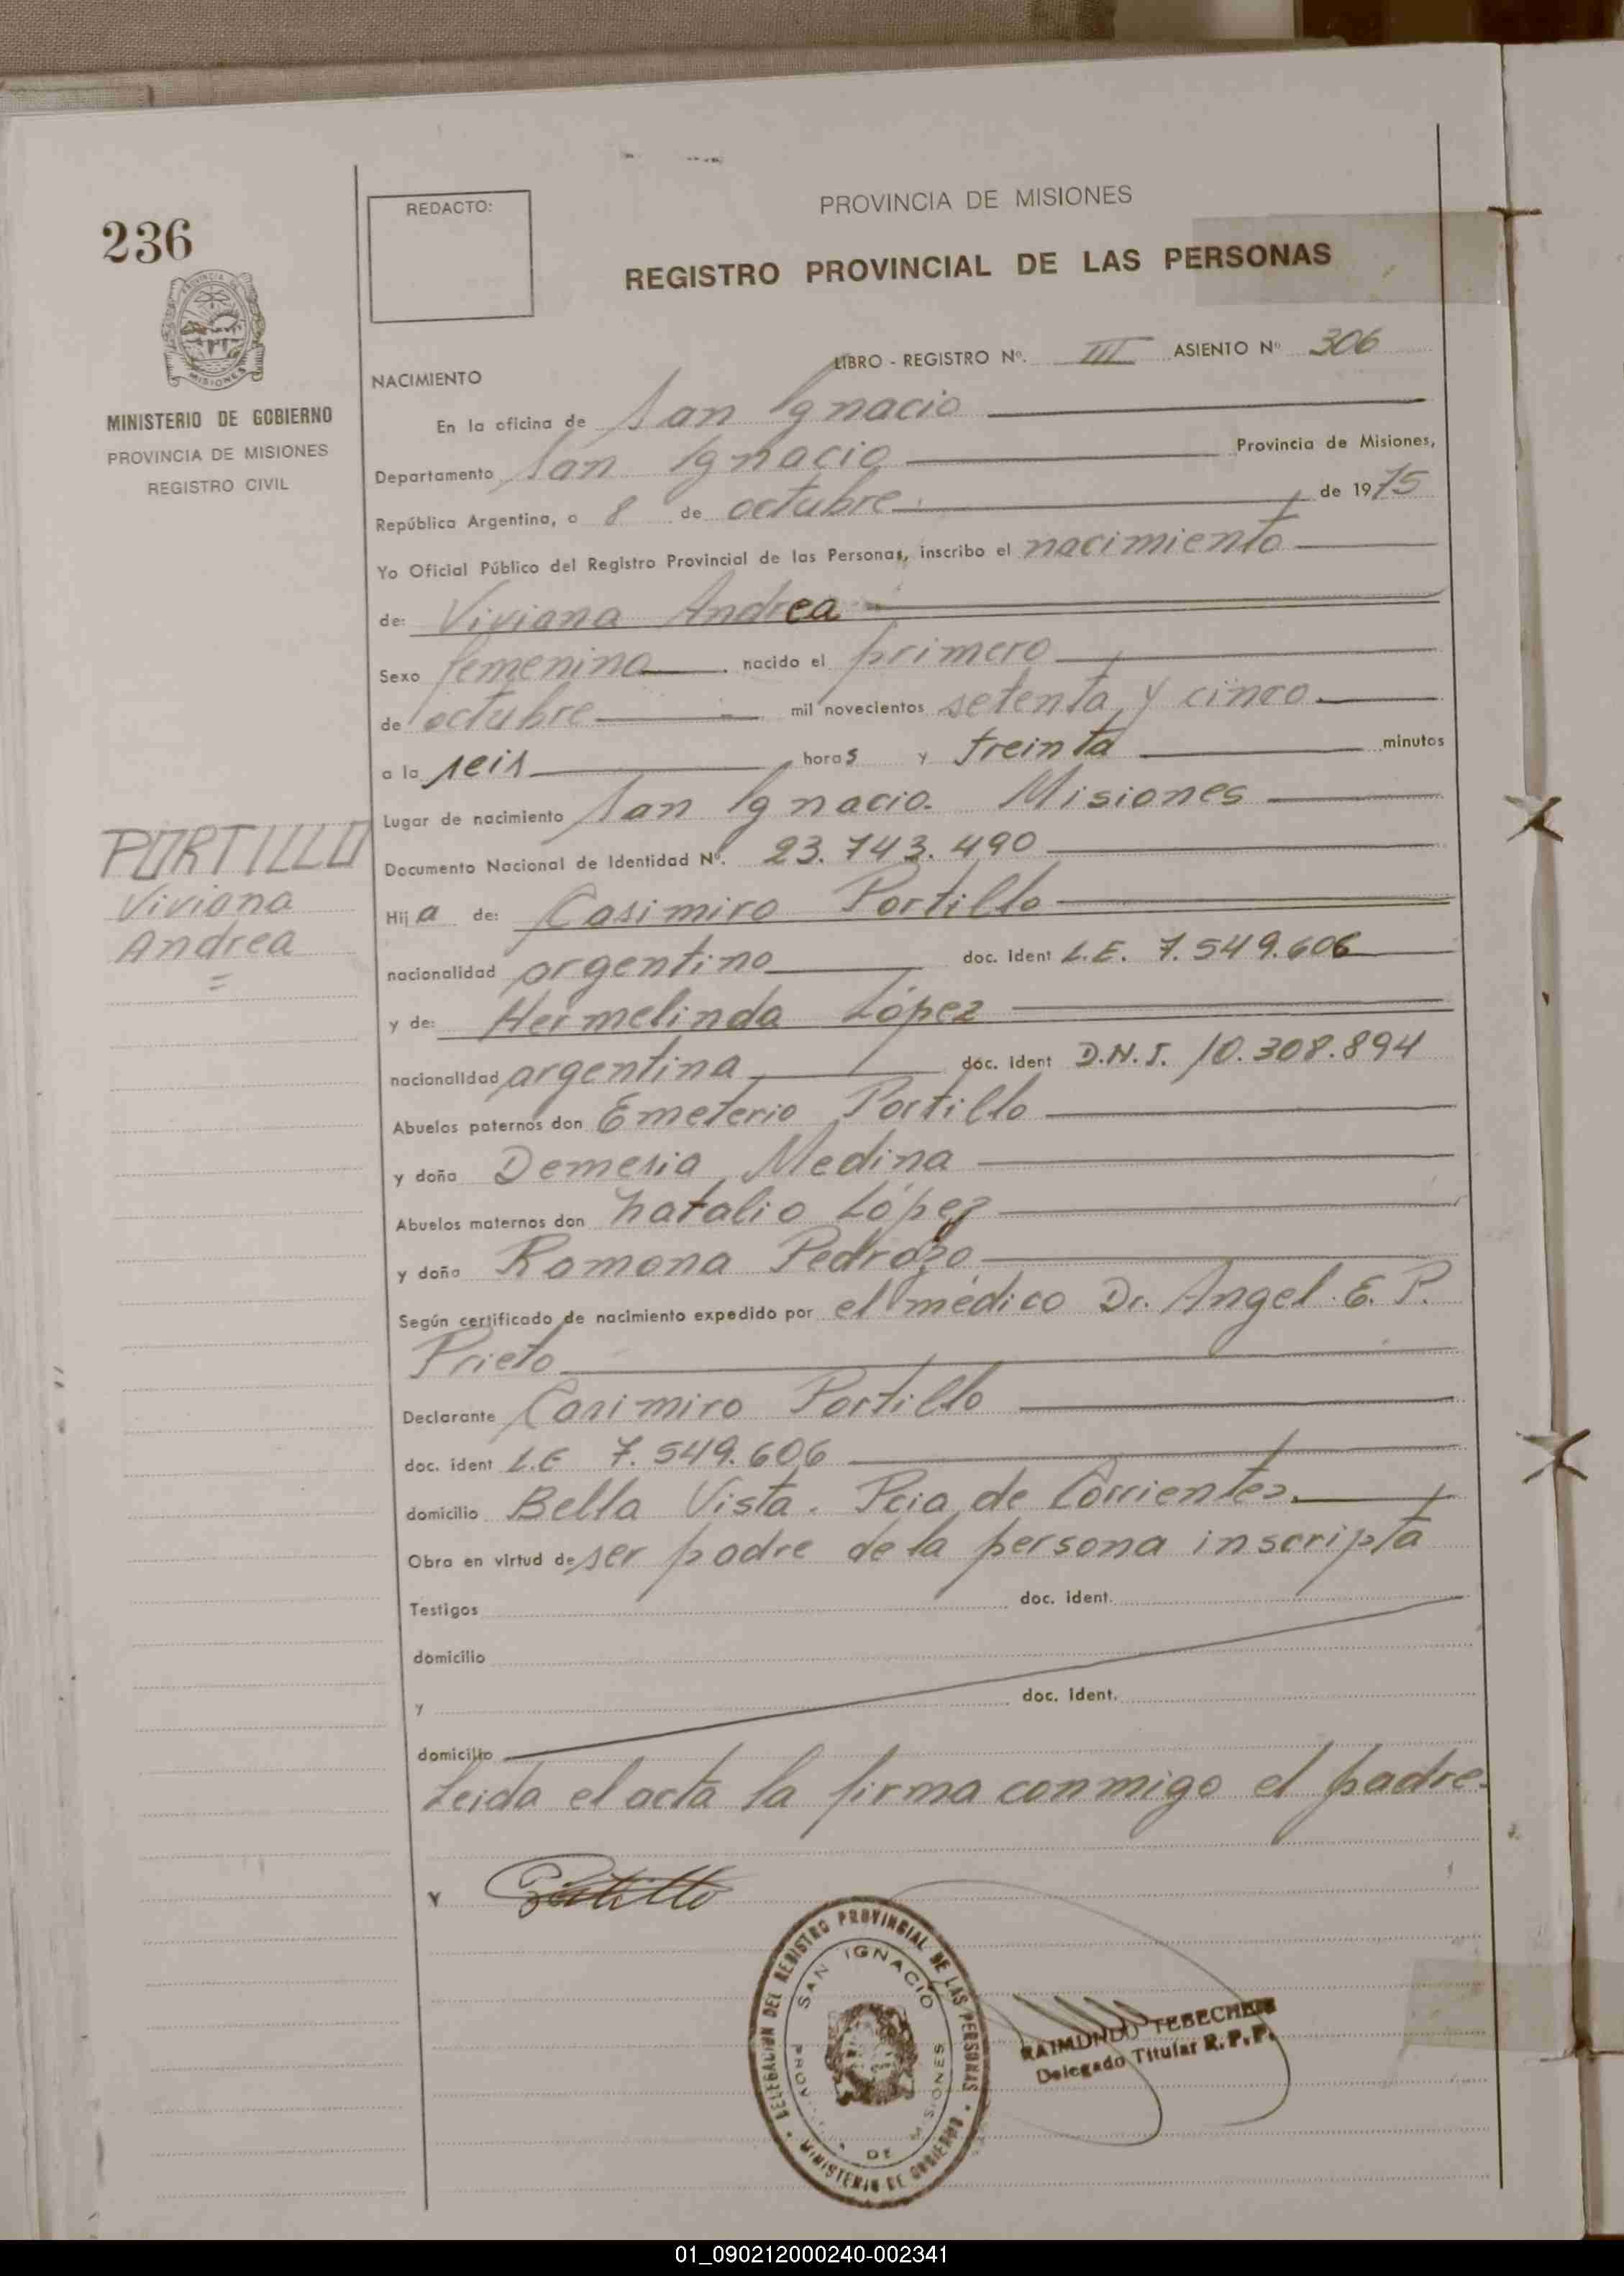 236
REDACTO:
PROVINCIA DE MISIONES
REGISTRO PROVINCIAL DE LAS PERSONAS
MISIONES
MINISTERIO DE GOBIERNO
PROVINCIA DE MISIONES
REGISTRO CIVIL
LIBRO - REGISTRO Nº. III ASIENTO Nº 306
NACIMIENTO
En la oficina de San Ignacio
Departamento San Ignacio Provincia de Misiones,
República Argentina, a 8 de octubre. de 1975
Yo Oficial Público del Registro Provincial de las Personas, inscribo el nacimiento
de: Viviana Andrea
Sexo femenino nacido el primero
de octubre mil novecientos setenta y cinco
a la seis horas y treinta minutos
Lugar de nacimiento San Ignacio. Misiones
Documento Nacional de Identidad Nº. 23.743.490
PORTILLO
Viviana
Andrea
=
Hija de: Casimiro Portillo
nacionalidad argentino doc. Ident L.E. 7.549.606
y de: Hermelinda López
nacionalidad argentina doc. ident D.N.I. 10.308.894
Abuelos paternos don Emeterio Portillo
y doña Demesia Medina
Abuelos maternos don Natalio López
y doña Ramona Pedrozo
Según certificado de nacimiento expedido por el médico Dr. Angel E. P.
Prieto
Declarante Casimiro Portillo
doc. ident L.E 7.549.606
domicilio Bella Vista. Pcia de Corrientes.
Obra en virtud de ser padre de la persona inscripta
Testigos doc. ident.
domicilio
y doc. Ident.
domicilio
Leida el acta la firma conmigo el padre.
Portillo
DELEGACION DEL REGISTRO PROVINCIAL DE LAS PERSONAS
MINISTERIO DE GOBIERNO
SAN IGNACIO
DE MISIONES
RAIMUNDO
Delegado Titular R.P.P.
01_090212000240-002341